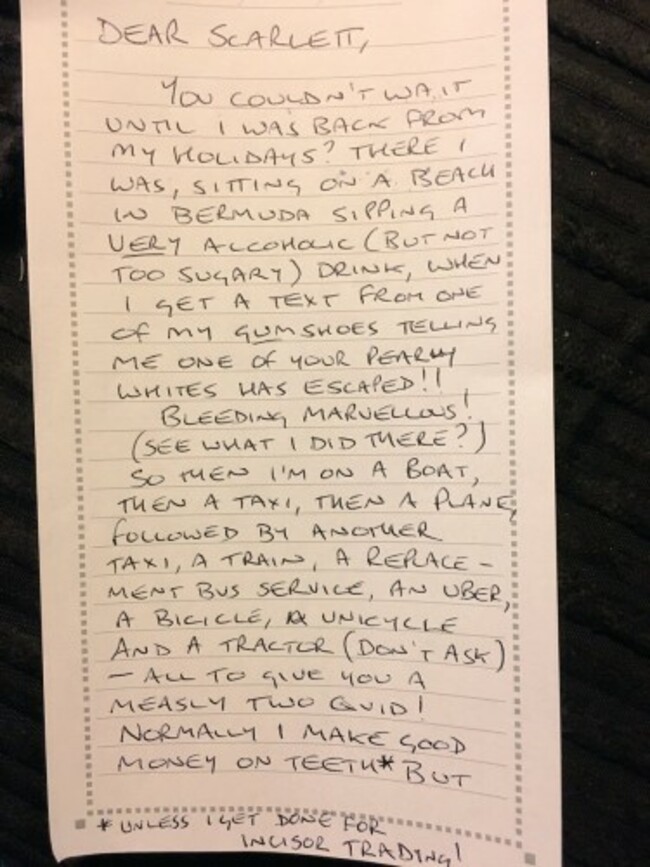 DEAR SCARLETT,
YOU COULDN'T WAIT
UNTIL I WAS BACK FROM
MY HOLIDAYS? THERE I
WAS, SITTING ON A BEACH
IN BERMUDA SIPPING A
VERY ALCOHOLIC (BUT NOT
TOO SUGARY) DRINK, WHEN
I GET A TEXT FROM ONE
OF MY GUMSHOES TELLING
ME ONE OF YOUR PEARLY
WHITES HAS ESCAPED!!
BLEEDING MARVELLOUS!
(SEE WHAT I DID THERE?)
SO THEN I'M ON A BOAT,
THEN A TAXI, THEN A PLANE,
FOLLOWED BY ANOTHER
TAXI, A TRAIN, A REPLACE-
MENT BUS SERVICE, AN UBER,
A BICICLE, A UNICYCLE
AND A TRACTOR (DON'T ASK)
- ALL TO GIVE YOU A
MEASLY TWO QUID!
NORMALLY I MAKE GOOD
MONEY ON TEETH* BUT
* UNLESS I GET DONE FOR
INCISOR TRADING!